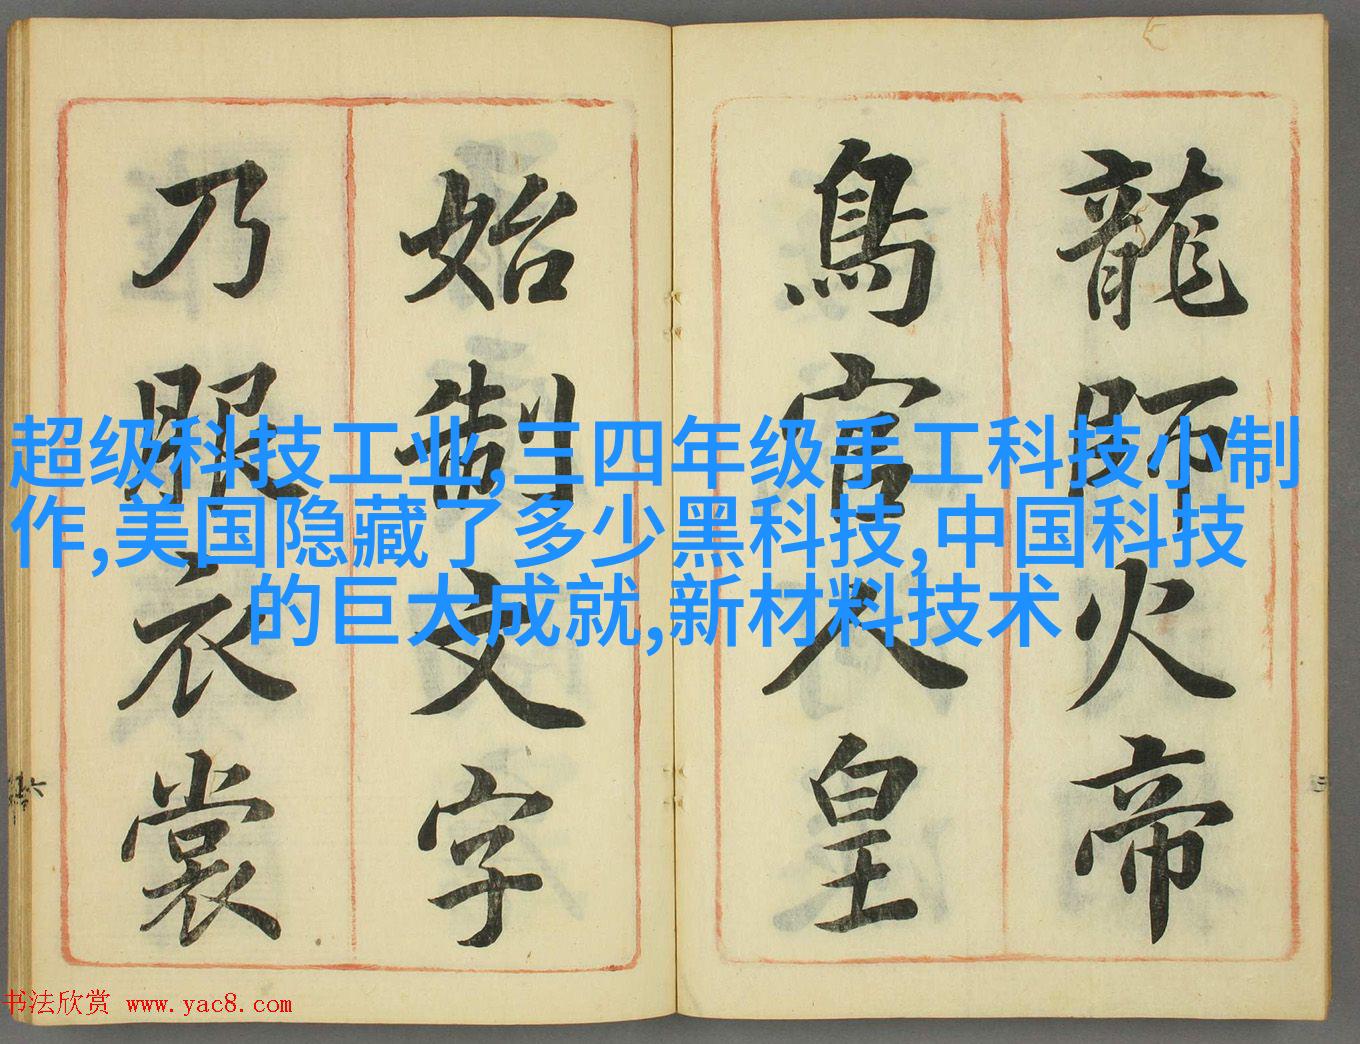 龍師火帝
鳥官人皇
始制文字
乃服衣裳
超级科技工业,三四年级手工科技小制
作,美国隐藏了多少黑科技,中国科技
的巨大成就,新材料技术
书法欣赏 www.yac8.com